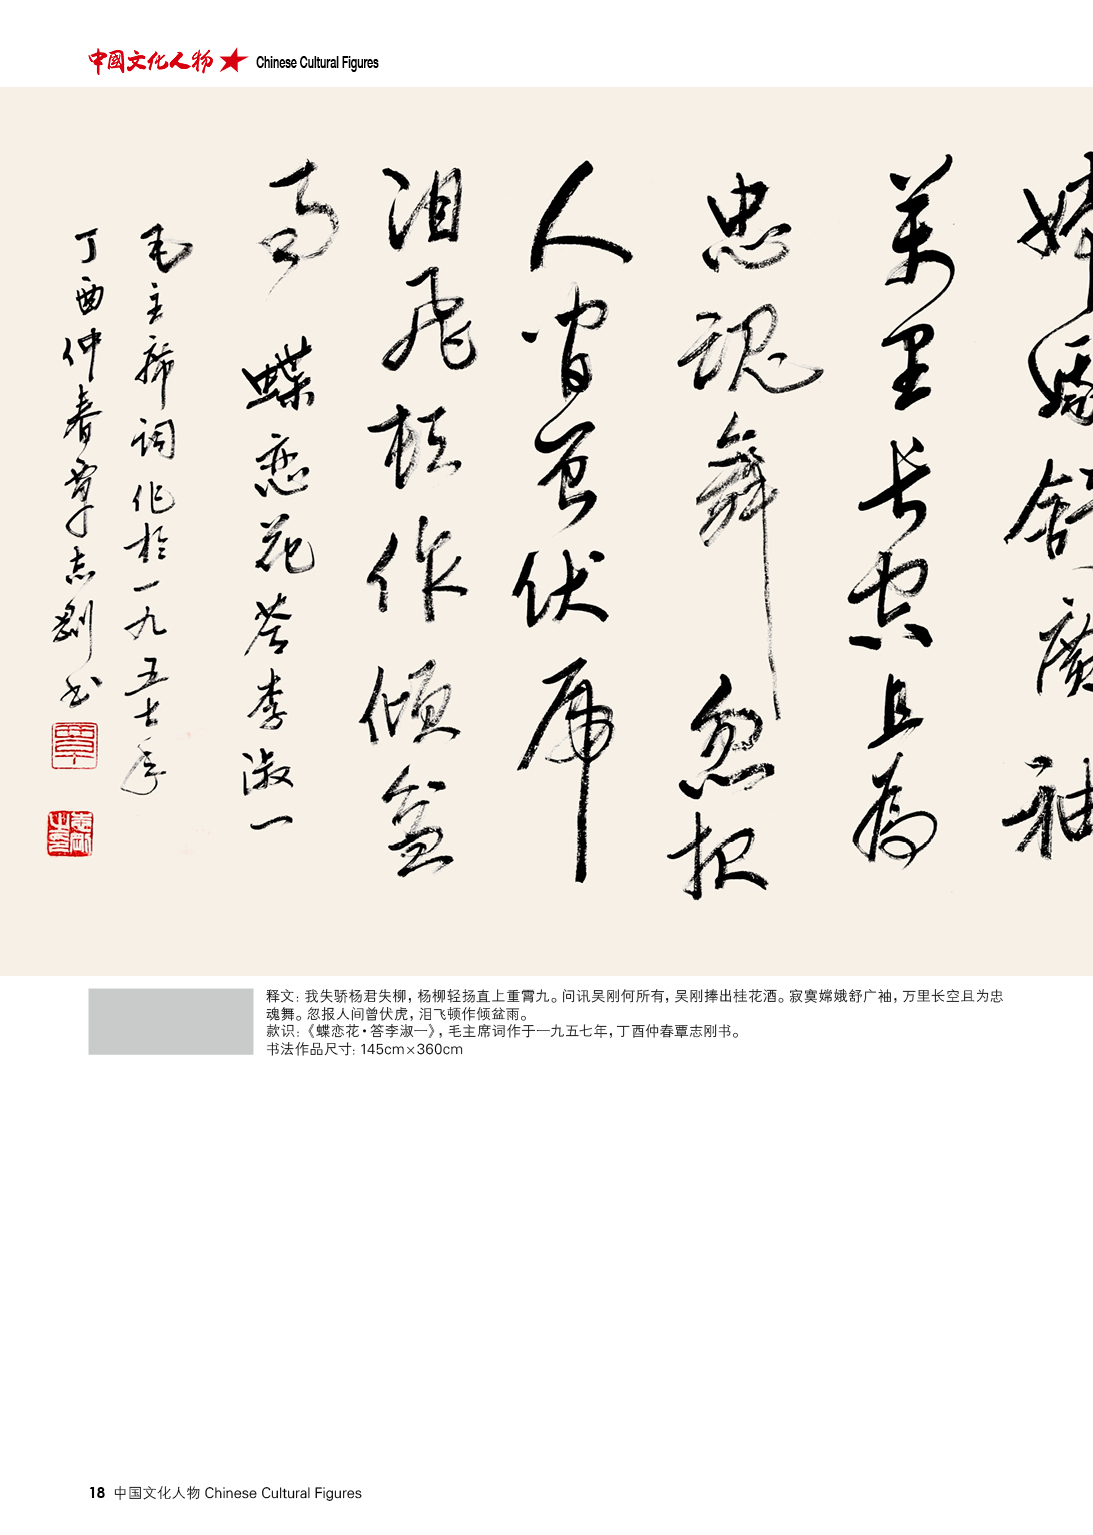 中國文化人物 Chinese Cultural Figures
嫦娥舒廣袖
萬里长空且為
忠魂舞 忽报
人间曾伏虎
泪飞顿作倾盆
雨 蝶恋花答李淑一
毛主席词作於一九五七年
丁酉仲春覃志刚书
释文：我失骄杨君失柳，杨柳轻扬直上重霄九。问讯吴刚何所有，吴刚捧出桂花酒。寂寞嫦娥舒广袖，万里长空且为忠
魂舞。忽报人间曾伏虎，泪飞顿作倾盆雨。
款识：《蝶恋花·答李淑一》，毛主席词作于一九五七年，丁酉仲春覃志刚书。
书法作品尺寸：145cm×360cm
18 中国文化人物 Chinese Cultural Figures